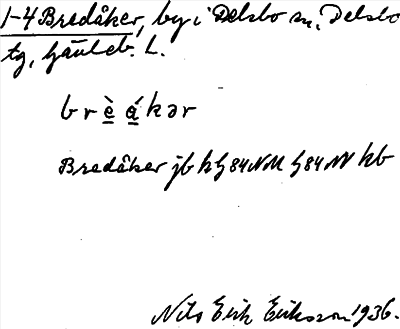 1-4 Bredåker, by i Delsbo sn. Delsbo
tg, Gävleb. L.
b r è̲ á̲ k ə r
Bredåker jb k G 84 NM G 84 NV kb
Nils Erik Eriksson 1936.